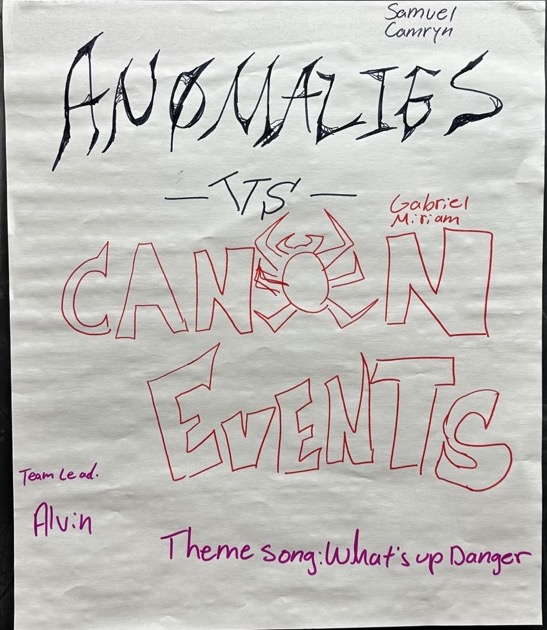 Samuel
Camryn
ANOMALIES
- VS -
Gabriel
Miriam
CANON
EVENTS
Team Lead.
Alvin
Theme song: What's up Danger